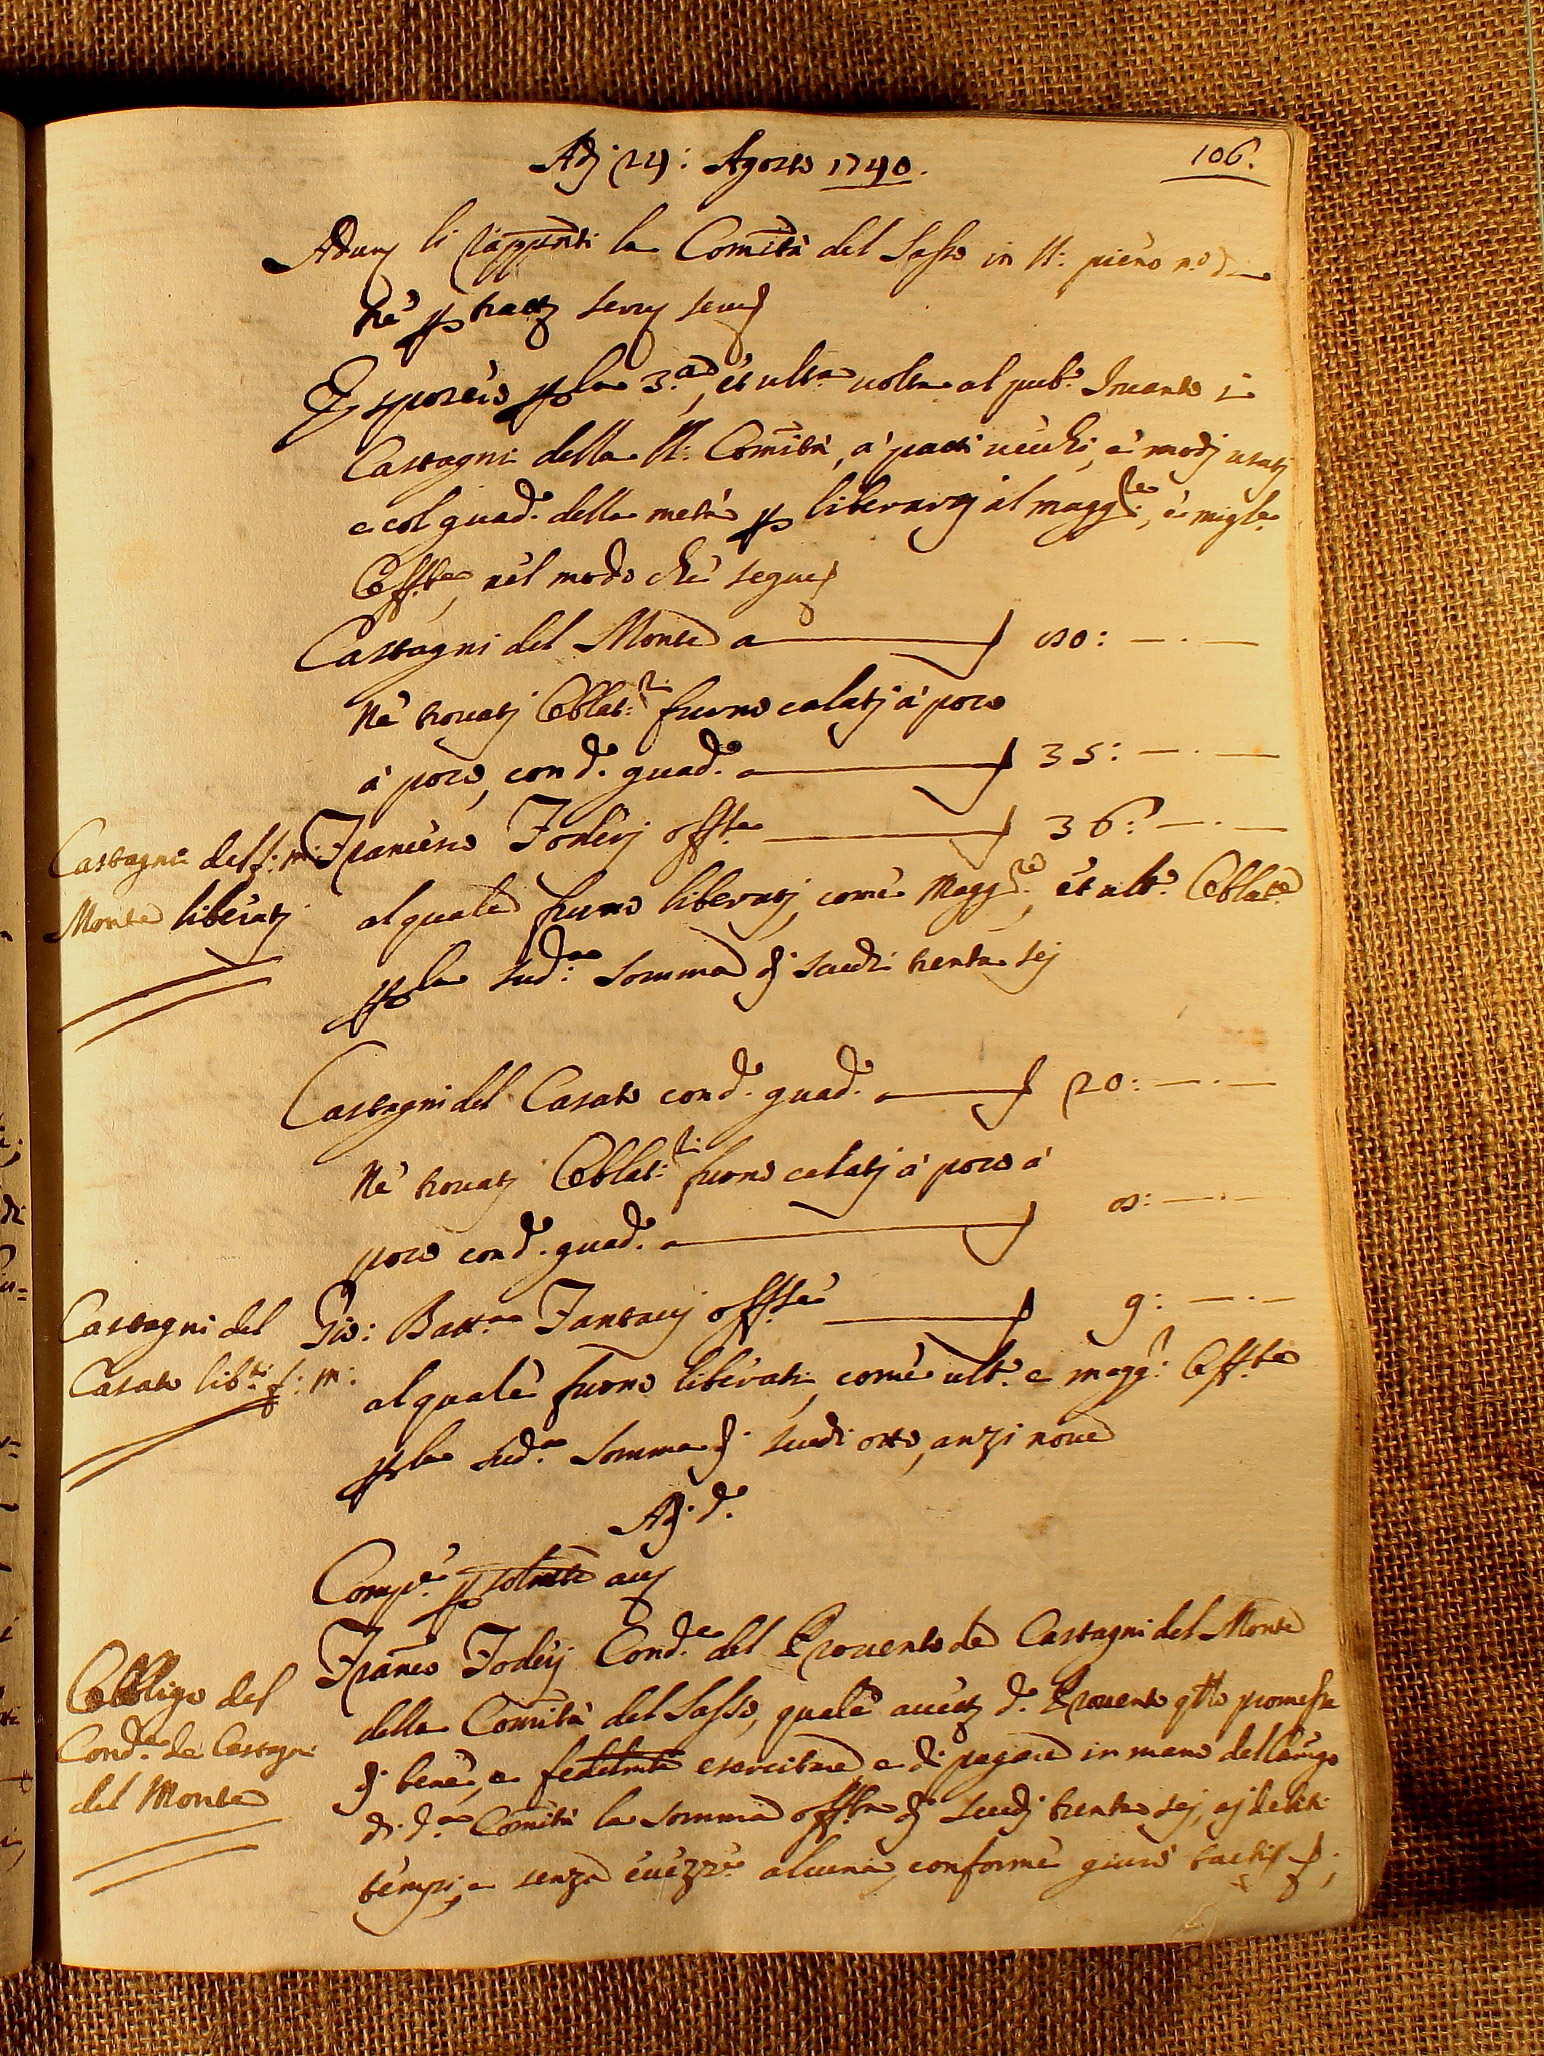 106.
Adj 24: Agosto 1740.
Adun li Rapp̃nti la Comĩtà del Sasso in N: pieno n.o di
tre p
Esposero p la 3.a, et ult.a volta al pub.o Incanto i
Castagni della N: Comĩtà, à patti vecchi, e modj usatj
e col guad.o della metà p liberarsj al magg.re, è migl.e
Offte, nel modo che segue
Castagni del Monte a 80: — · —
Nè trovatj Oblat:ri furno calatj à poco
à poco, con d.o guad.o a 35: — · —
Castagni del f: m:
Monte liberatj
Francesco Foderj offse 36: — · —
al quale furno liberatj, come Magg.re, et ult.o Oblat.e
p la sud.a somma dj scudi trenta sej
Castagni del Casato con d.o guad.o a 20: — · —
Nè trovatj Oblat:ri furno calatj à poco à
poco con d.o guad.o a 8: — · —
Castagni del
Casato lib.ti f: m:
Gio: Batt.a Fantacj offse 9: — · —
al quale furno liberati, come ult.o e magg.r Offte
p la sud.a somma dj scudi otto, anzi nove
Adj d.o
Comp.e p
Obbligo del
Cond.e de Castagni
del Monte
Franc̃o Foderj Cond.e del Provento de Castagni del Monte
della Comĩtà del Sasso, quale d.o Provento promesse
dj bene, e fedelm̃te esercitare e di pagare in mano del Camgo
di d.a Comĩtà la somma offta dj scudj trenta sej, aj debiti
tempi, e senza eccezz.e alcuna, conforme giurò tactis